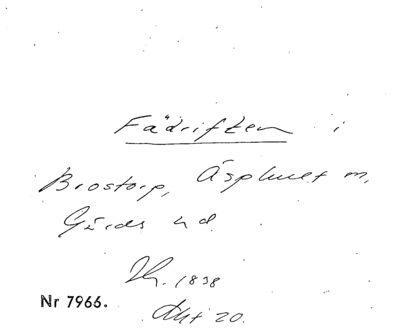 Fädriften i
Brostorp, Äsphult m,
Gärds hd.
1838
Nr 7966.
Akt 20.